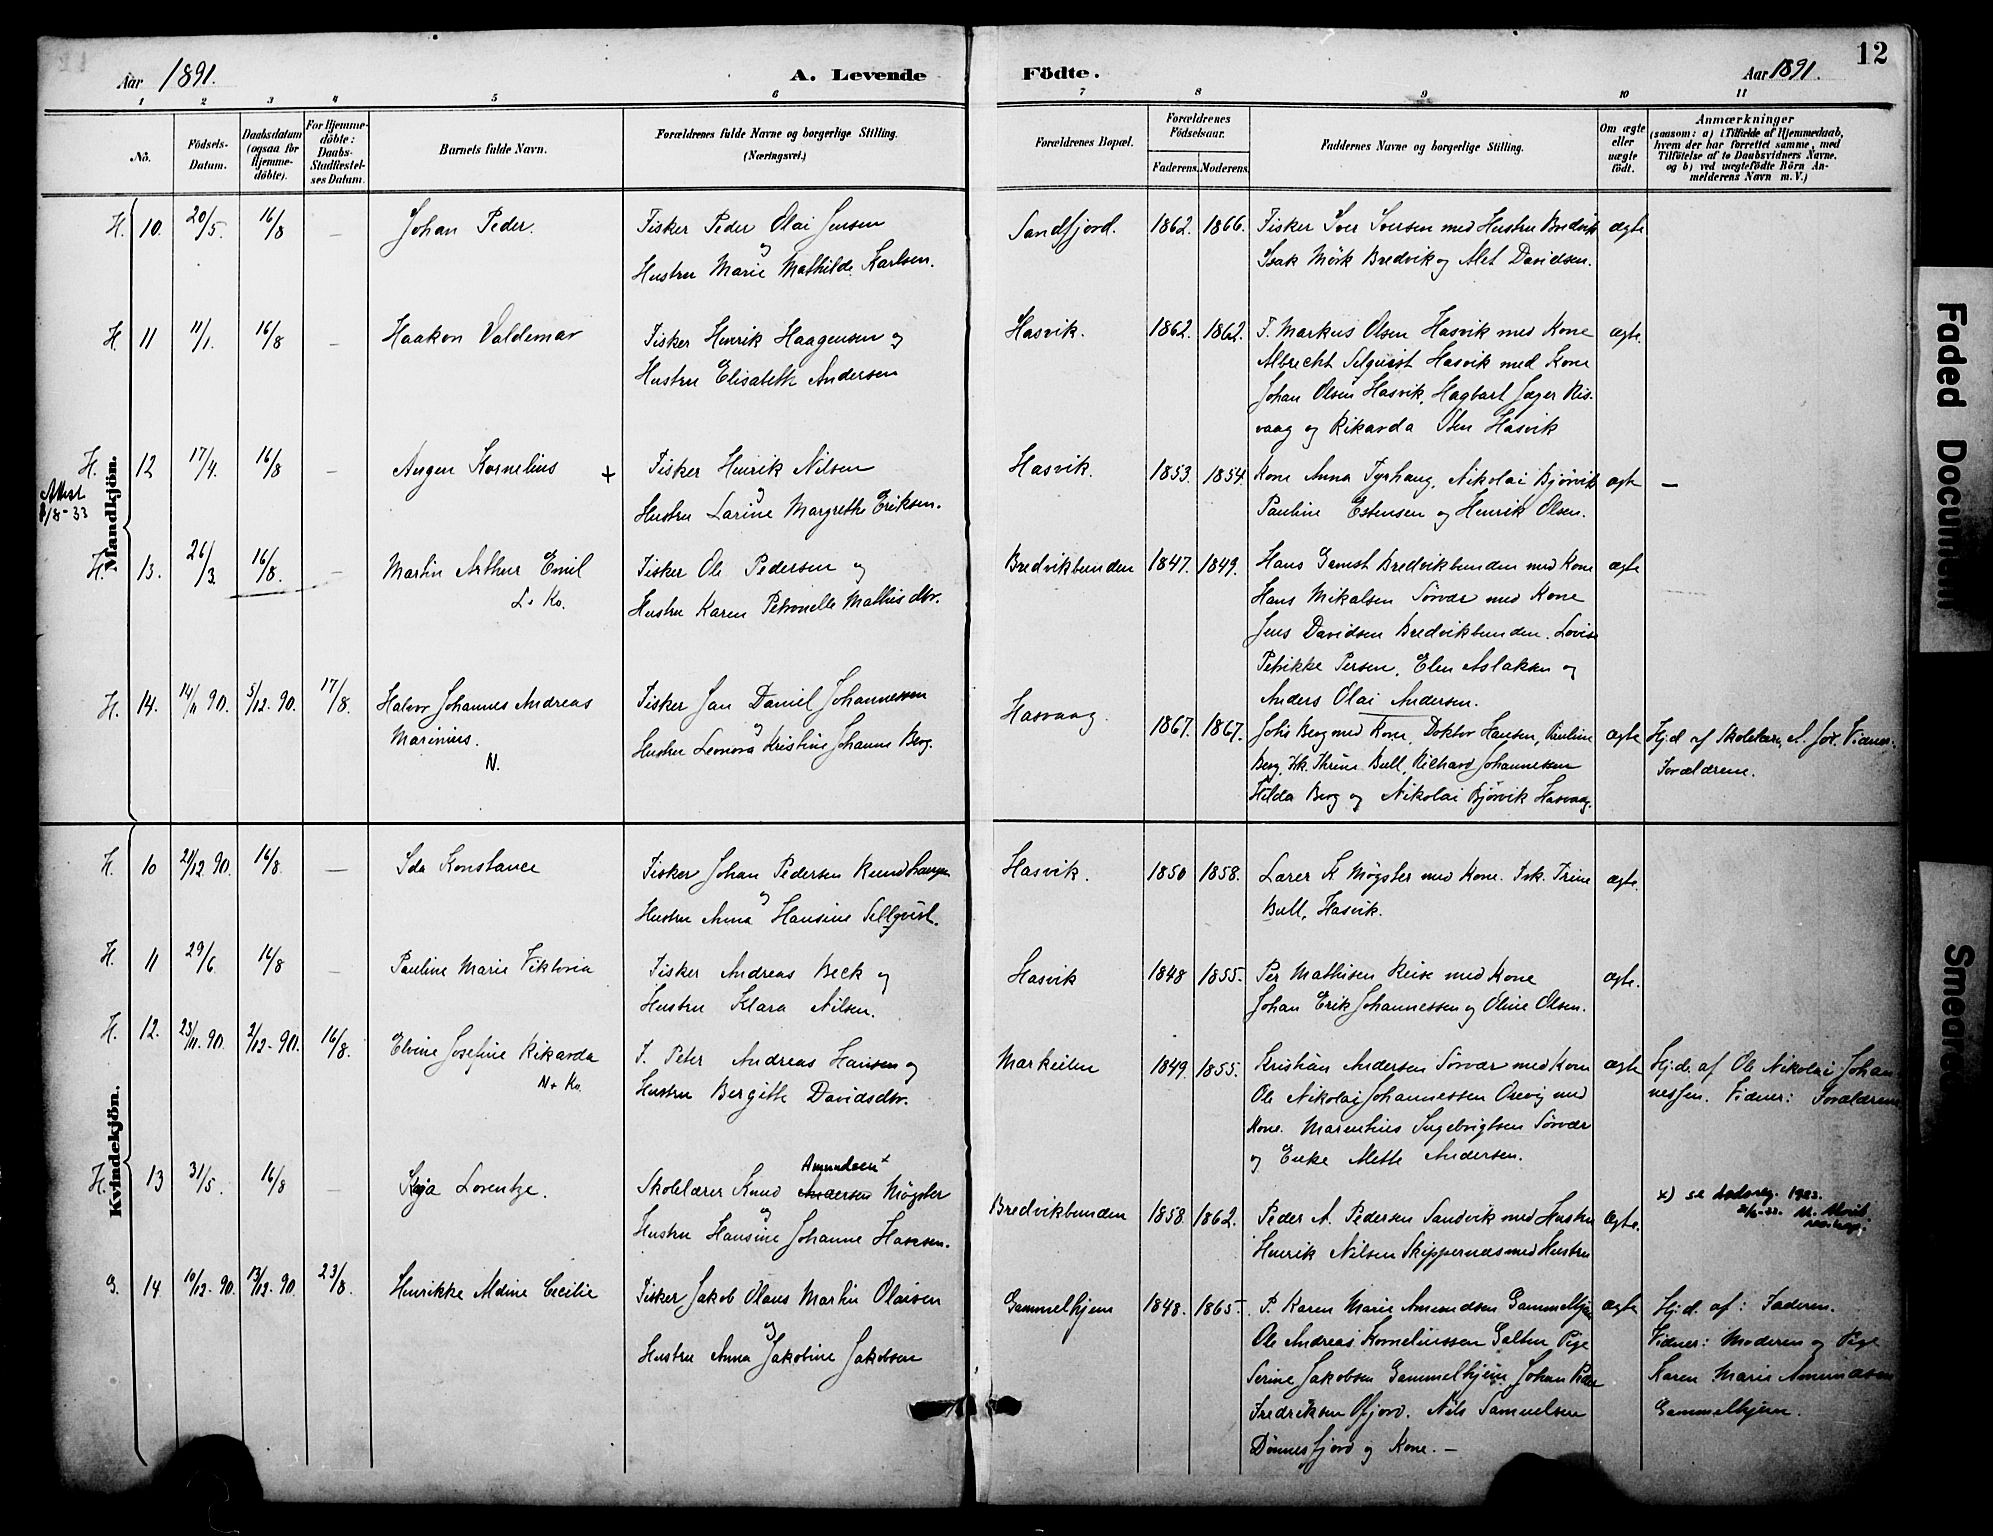 12
Aar 1891. A. Levende Födte. Aar 1891.
1 2 3 4 5 6 7 8 9 10 11
No. Födsels-Datum. Daabsdatum (ogsaa for Hjemme-döbte). For Hjemme-döbte: Daabs-Stadfæstel-ses Datum. Barnets fulde Navn. Forældrenes fulde Navne og borgerlige Stilling. (Næringsvei.) Forældrenes Bopæl. Forældrenes Födselsaar. Faderens. Moderens. Faddernes Navne og borgerlige Stilling. Om ægte eller uægte födt. Anmærkninger (saasom: a) i Tilfælde af Hjemmedaab, hvem der har forrettet samme, med Tilföielse af to Daabsvidners Navne, og b) ved uægtefödte Börn An-melderens Navn m. V.)
Mandkjön.
H. 10. 20/5. 16/8 — Johan Peder. Fisker Peder Olai Jensen Sandfjord. 1862. 1866. Fisker Iver Iversen med Hustru Bredvik ægte
og
Hustru Marie Mathilde Karlsen. Isak Mörk Bredvik og Alet Davidsen.
H. 11 11/1. 16/8 — Haakon Valdemar Fisker Henrik Haagensen og Hasvik. 1862. 1862. F. Markus Olsen Hasvik med Kone ægte.
Hustru Elisabeth Andersen Albrecht Selqvist Hasvik med Kone
Johan Olsen Hasvik, Hagbart Jæger Ris-
vaag og Rikarda Hasvik
H. 12 17/4. 16/8 — Augen Kornelius + Fisker Henrik Nilsen Hasvik. 1853. 1854. Kone Anna Fyrhaug, Nikolai Bjørvik ægte —
Attest
/8-33
og
Hustru Larine Margrethe Eriksen. Pauline Estensen og Henrik Olsen.
H. 13. 26/3 16/8. — Martin Arthur Emil Fisker Ole Pedersen og Bredvikbunden 1847. 1849. Hans Bredvikbunden med Kone ægte
L. Ko. Hustru Karen Petronelle Mathisdtr. Hans Mikalsen Sørvær med Kone
Jens Davidsen Bredvikbunden. Lovise
Petrikke Persen, Elen Aslaksen og
Anders Olai Andersen.
H. 14. 14/11 90. 5/12. 90. 17/8. Halvor Johannes Andreas Fisker Jan Daniel Johannessen Hasvaag. 1867. 1867. Johs Berg med Kone, Doktor Hansen, Pauline ægte Hjd. af Skolelærer A. Vidner:
Marinius. og
N. Hustru Leonora Kristine Johanne Berg. Berg, Frk. Thrine Bull, Richard Johannessen Forældrene.
Hilda Berg og Nikolai Bjørvik Hasvaag.
Kvindekjön.
H. 10 21/12 90. 16/8. — Ida Konstance Fisker Johan Pedersen Rundhaugen Hasvik. 1850 1858. Lærer K Møgster med Kone. Frk. Trine ægte.
og
Hustru Anna Hansine Sellqvist. Bull, Hasvik.
H. 11 29/6. 16/8 — Pauline Marie Viktoria Fisker Andreas Beck og Hasvik 1848 1855. Per Mathisen Reise med Kone ægte.
Hustru Klara Nilsen. Johan Erik Johannessen og Oline Olsen.
H. 12. 23/11. 90. 2/12. 90. 16/8. Elvine Josefine Rikarda F. Peter Andreas Hansen og Markeilen 1849. 1855. Kristian Andersen Sørvær med Kone ægte Hjd. af Ole Nikolai Johan-
N + Ko. Hustru Bergitte Davidsdtr. Ole Nikolai Johannessen med nessen. Vidner: Forældrene
Kone. Marenthius Ingebrigtsen Sørvær
og Enke Mette Andersen.
H. 13 31/5. 16/8 — Kaja Lorentze. Skolelærer Knud Andersen Amundsen + Møgster Bredvikbunden 1858. 1862. Peder A. Pedersen Sandvik med Hustru Ægte. x) se 1923.
og
Hustru Hansine Johanne Hansen. Henrik Nilsen Skippernæs med Hustru
G. 14. 10/12. 90. 13/12. 90. 23/8. Henrikke Aldine Cecilie Fisker Jakob Olaus Martin Olaisen Gammelhjem 1848. 1865 P. Karen Marie Amundsen Gammelhjem ægte Hjd. af: Faderen.
og
Hustru Anna Jakobine Jakobsen Ole Andreas Korneliussen Galten, Pige Vidner: Moderen og Pige
Serine Jakobsen Gammelhjem, Johan Peder Karen Marie Amundsen
Fredriksen Ofjord. Nils Samuelsen Gammelhjem.
Dönnesfjord og Kone. —
Faded Document
Smeared